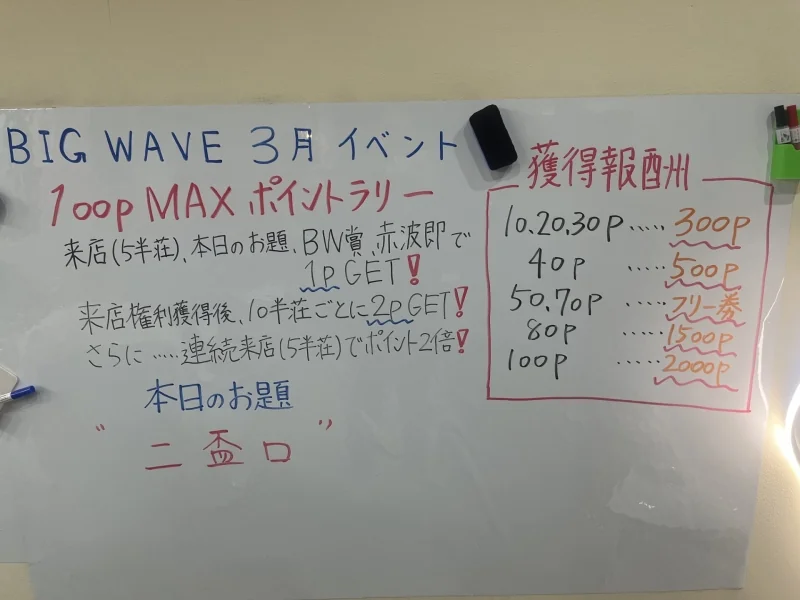 BIG WAVE 3月 イベント
100p MAX ポイントラリー
来店(5半荘)、本日のお題、BW賞、赤波即で
1p GET!
来店権利獲得後、10半荘ごとに2p GET!
さらに……連続来店(5半荘)でポイント2倍!
本日のお題
"二盃口"
獲得報酬州
10.20.30p ‥‥‥ 300p
40p ‥‥‥ 500p
50.70p ‥‥‥ フリー券
80p ‥‥‥ 1500p
100p ‥‥‥ 2000p